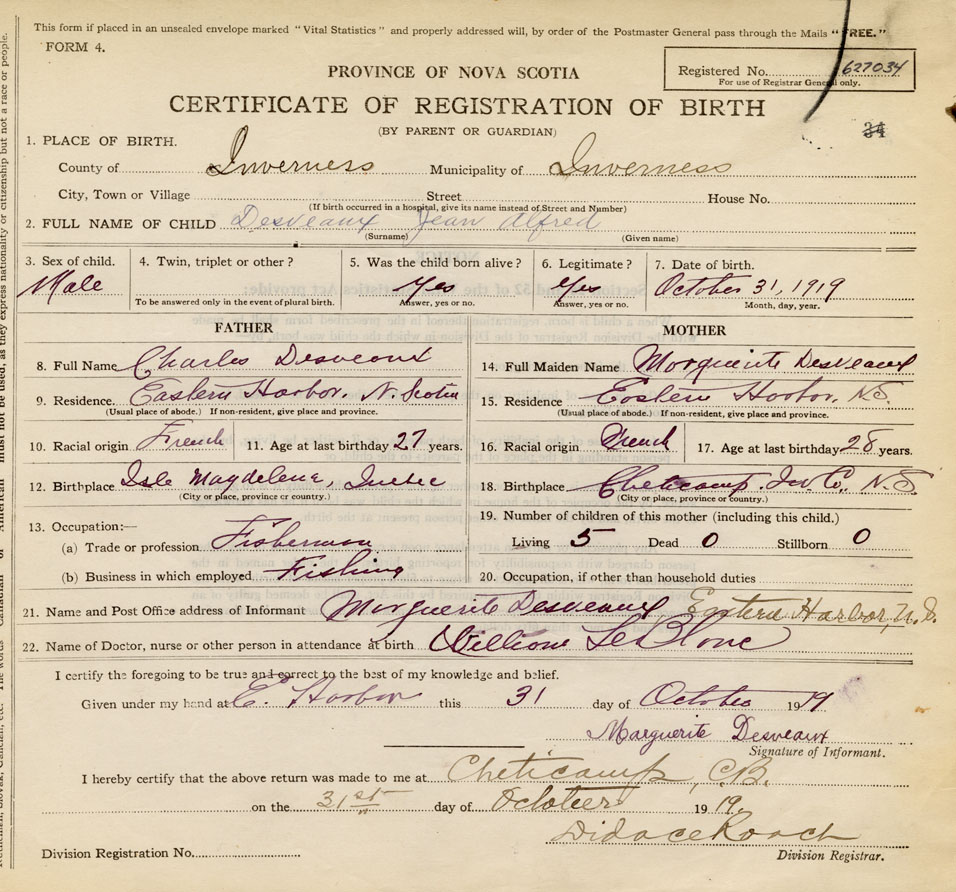 This form if placed in an unsealed envelope marked "Vital Statistics" and properly addressed will, by order of the Postmaster General pass through the Mails "FREE."
FORM 4.
PROVINCE OF NOVA SCOTIA
Registered No. 627034
For use of Registrar General only.
CERTIFICATE OF REGISTRATION OF BIRTH
(BY PARENT OR GUARDIAN)
34
1. PLACE OF BIRTH.
County of Inverness Municipality of Inverness
City, Town or Village Street House No.
(If birth occurred in a hospital, give its name instead of Street and Number)
2. FULL NAME OF CHILD Desveaux Jean Alfred
(Surname) (Given name)
3. Sex of child. 4. Twin, triplet or other? 5. Was the child born alive? 6. Legitimate? 7. Date of birth.
Male Yes Yes October 31, 1919
To be answered only in the event of plural birth. Answer, yes or no. Answer, yes or no. Month, day, year.
FATHER MOTHER
8. Full Name Charles Desveaux 14. Full Maiden Name Marguerite Desveaux
9. Residence. Eastern Harbor, N. Scotia 15. Residence Eastern Harbor, N.S.
(Usual place of abode.) If non-resident, give place and province. (Usual place of abode.) If non-resident, give place and province.
10. Racial origin French 11. Age at last birthday 27 years. 16. Racial origin French 17. Age at last birthday 28 years.
12. Birthplace Isle Magdelene, Quebec 18. Birthplace Cheticamp. Inv Co. N.S.
(City or place, province or country.) (City or place, province or country.)
13. Occupation:— 19. Number of children of this mother (including this child.)
(a) Trade or profession Fisherman Living 5 Dead 0 Stillborn 0
(b) Business in which employed Fishing 20. Occupation, if other than household duties
21. Name and Post Office address of Informant Marguerite Desveaux, Eastern Harbor, N.S.
22. Name of Doctor, nurse or other person in attendance at birth Leblanc
I certify the foregoing to be true and correct to the best of my knowledge and belief.
Given under my hand at E. Harbor this 31 day of October 1919
Marguerite Desveaux
Signature of Informant.
I hereby certify that the above return was made to me at Cheticamp, C.B.
on the 31st day of October 1919.
Didace Roach
Division Registration No. Division Registrar.